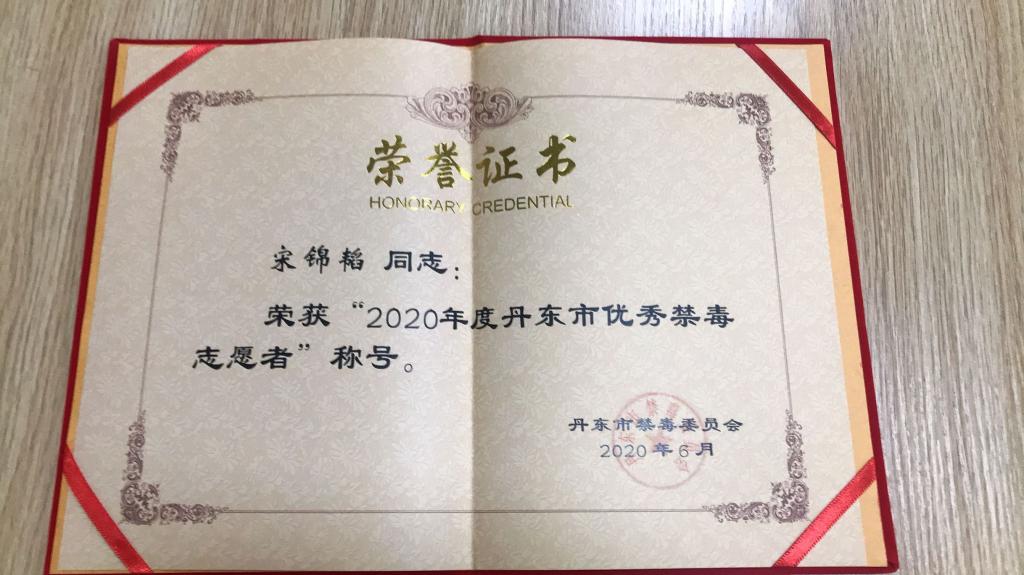 荣誉证书
HONORARY CREDENTIAL
宋锦韬 同志：
荣获“2020年度丹东市优秀禁毒
志愿者”称号。
丹东市禁毒委员会
2020年6月